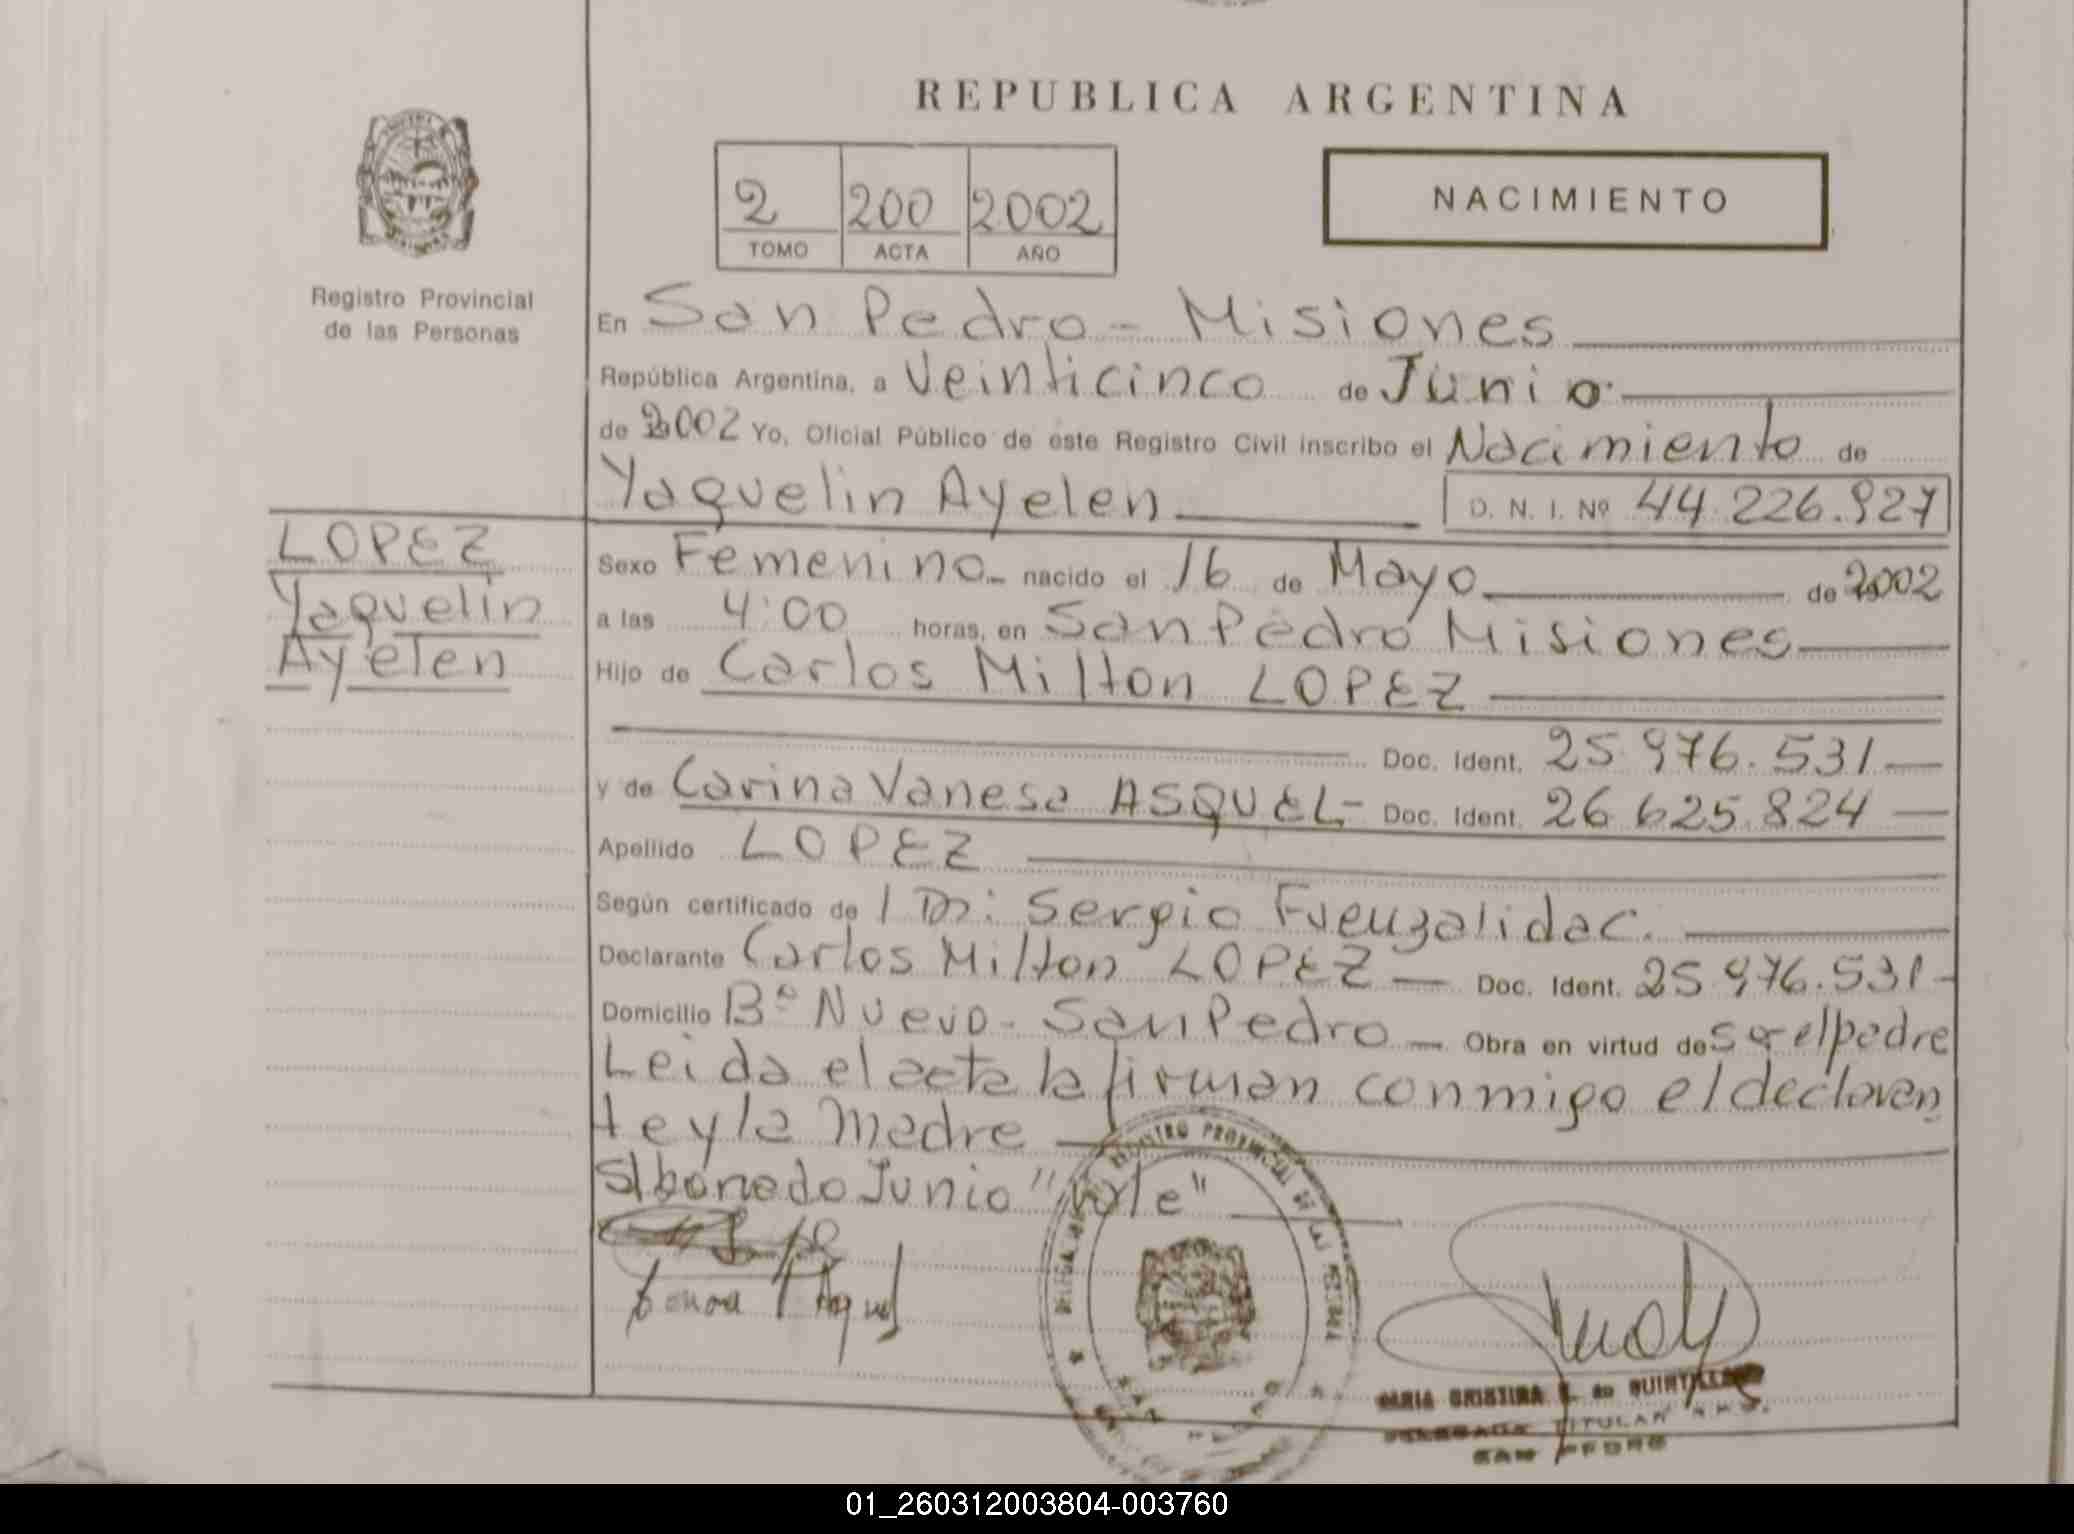 REPUBLICA ARGENTINA
2 200 2002
TOMO ACTA AÑO
NACIMIENTO
Registro Provincial
de las Personas
En San Pedro - Misiones
República Argentina, a Veinticinco de Junio
de 2002 Yo, Oficial Público de este Registro Civil inscribo el Nacimiento de
Yaquelin Ayelen D. N. I. Nº 44.226.927
LOPEZ
Yaquelin
Ayelen
Sexo Femenino nacido el 16 de Mayo de 2002
a las 4:00 horas, en San Pedro Misiones
Hijo de Carlos Milton LOPEZ
Doc. Ident. 25.976.531
y de Carina Vanesa ASQUEL- Doc. Ident. 26.625.824
Apellido LOPEZ
Según certificado de Dr: Sergio
Declarante Carlos Milton LOPEZ Doc. Ident. 25.976.531-
Domicilio Bº Nuevo - San Pedro Obra en virtud de Ser el padre
Leida el acta la firman conmigo el declaran
te y la Madre
S/borrado Junio "Vale"
REGISTRO PROVINCIAL DE LAS PERSONAS
MARIA CRISTINA de
TITULAR
SAN PEDRO
01_260312003804-003760